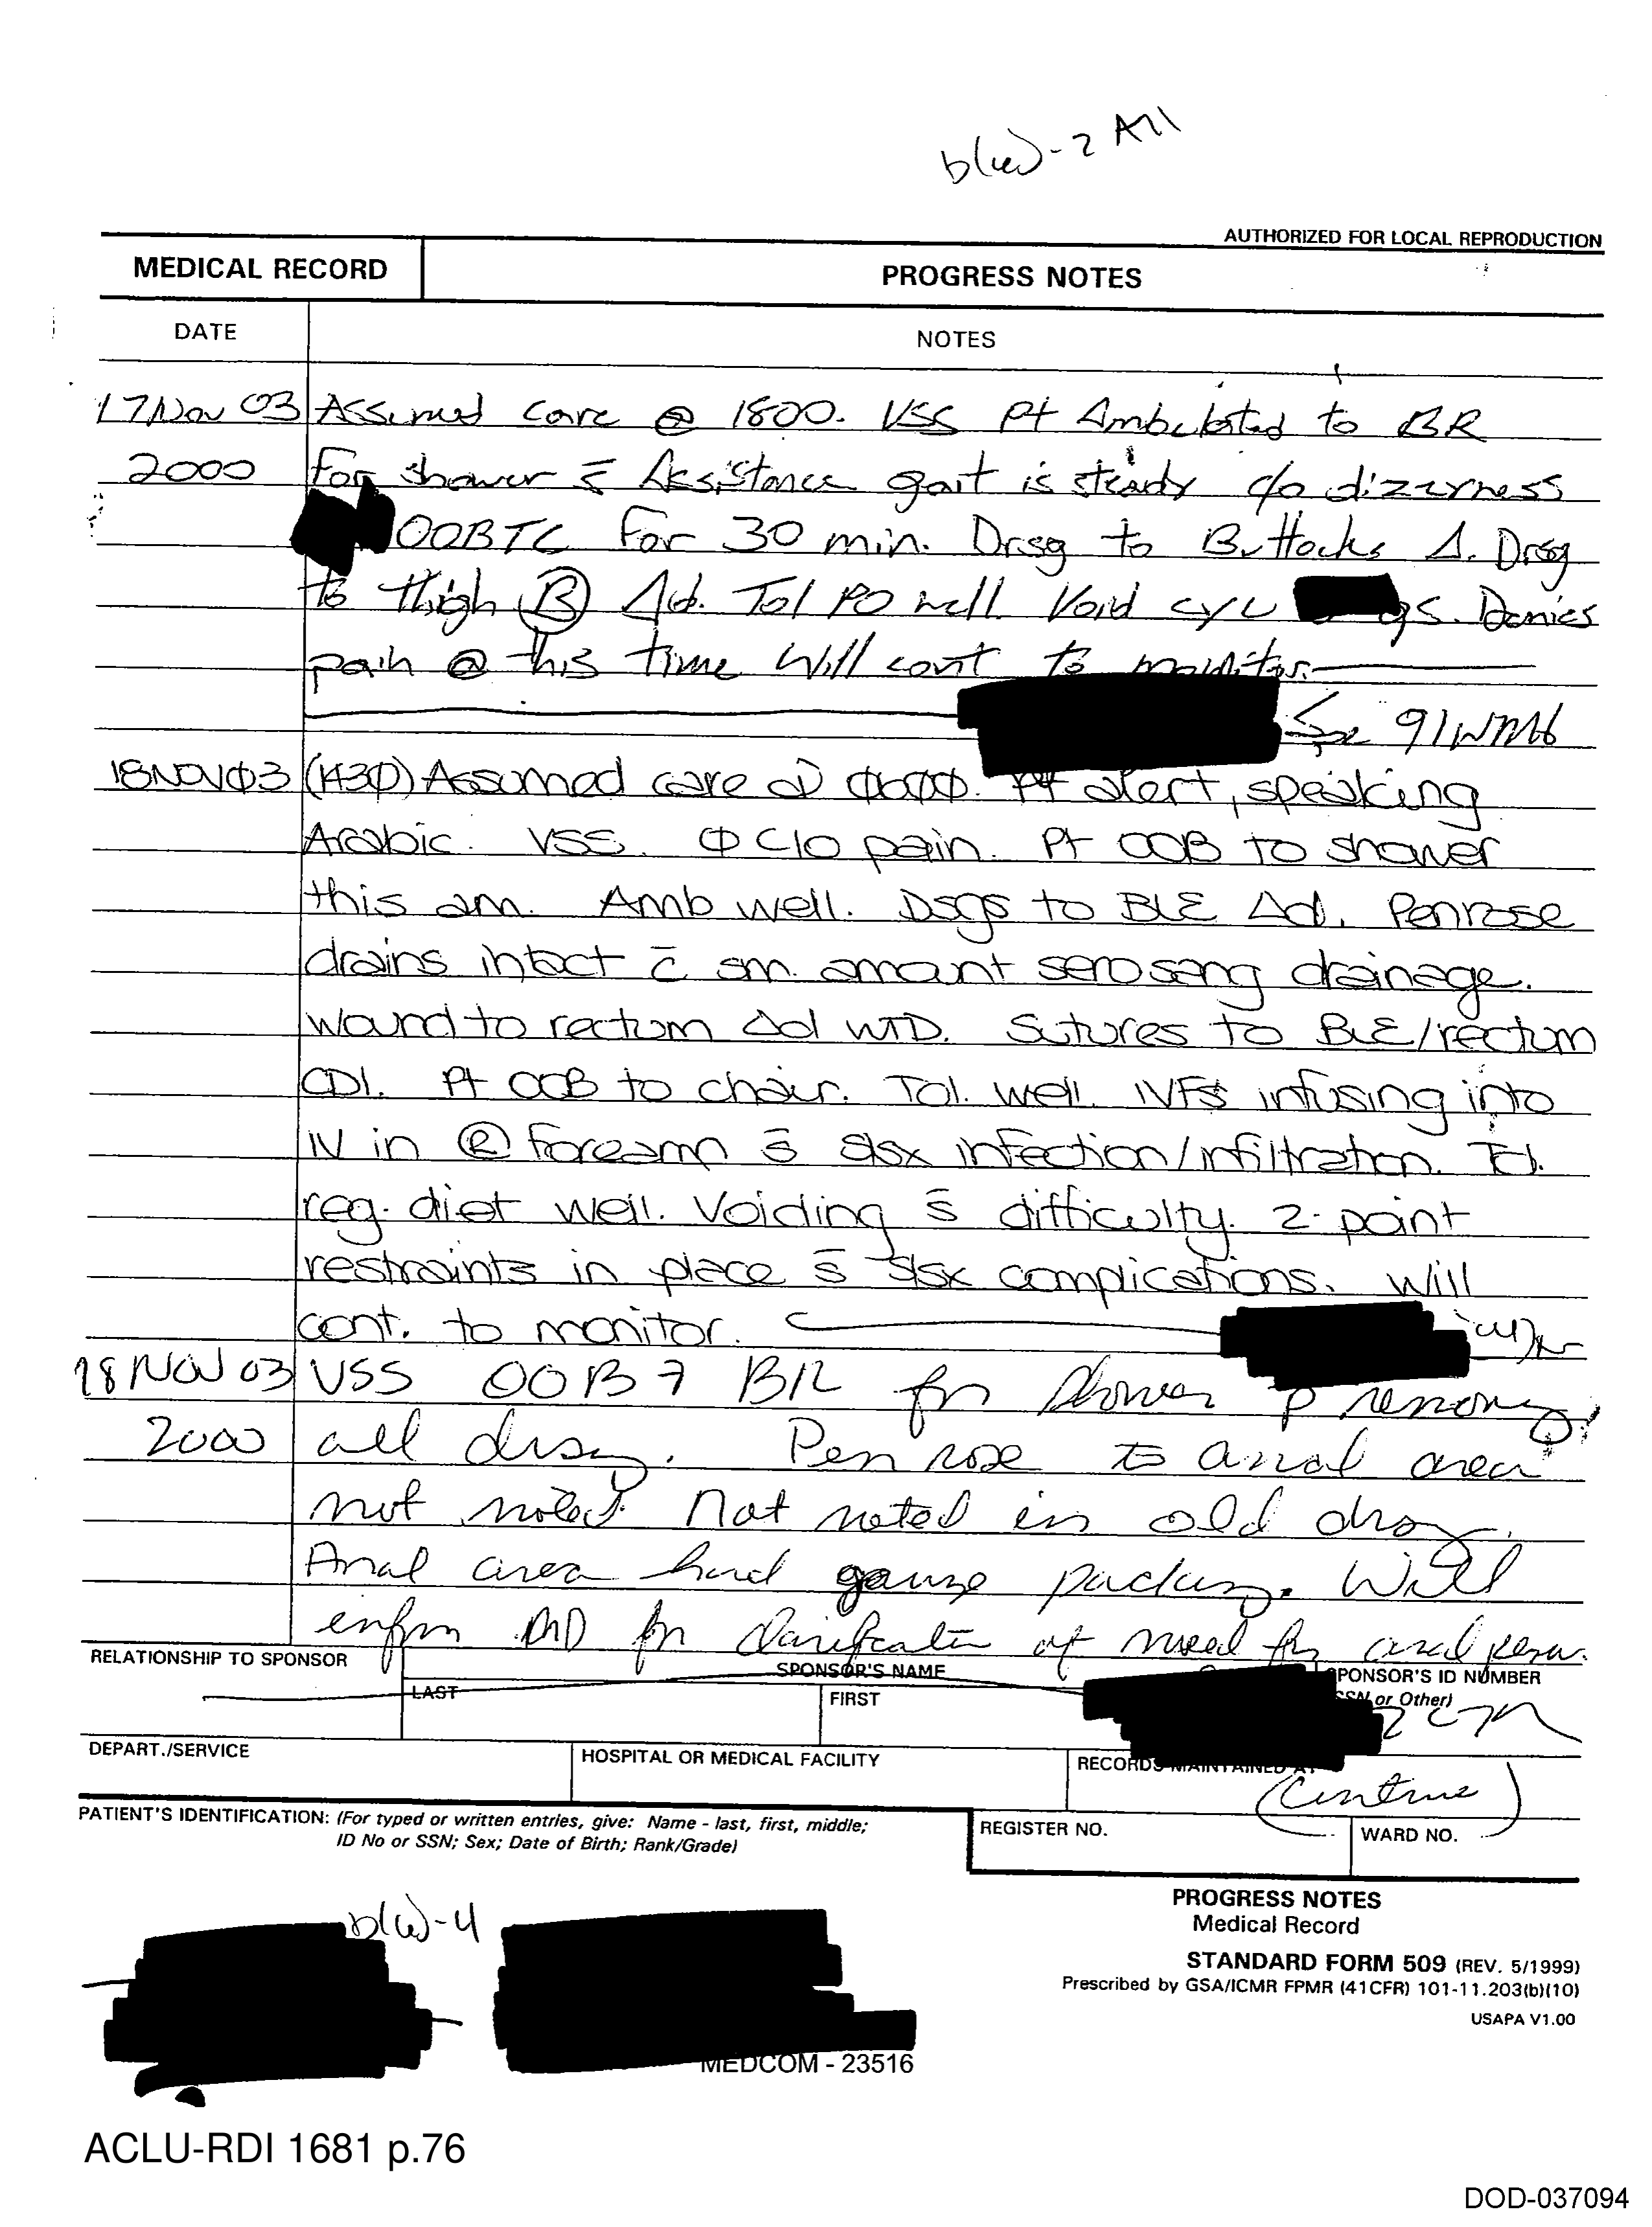 b(6)-2 All
AUTHORIZED FOR LOCAL REPRODUCTION
MEDICAL RECORD
PROGRESS NOTES
DATE
NOTES
17 Nov 03 Assumed care @ 1800. VSS Pt Ambulated to BR
2000 For shower c̄ Assistance gait is steady c/o dizzyness
OOBTC For 30 min. Drsg to Buttocks Δ. Drsg
to thigh Ⓑ Δd. Tol PO well. Void cyu gs. Denies
pain @ this time Will cont to monitor.
91WM6
18NOVØ3 (143Ø) Assumed care @ Ø6ØØ. Pt alert, speaking
Arabic. VSS. Ø C/O pain. Pt OOB to shower
this am. Amb well. Dsgs to BLE Δd. Penrose
drains intact c̄ sm. amount serosang drainage.
Wound to rectum Δd WTD. Sutures to BLE/rectum
CDI. Pt OOB to chair. Tol. well. IVFs infusing into
IV in Ⓡ forearm s̄ s/sx infection/infiltration. Tol.
reg. diet well. Voiding s̄ difficulty. 2-point
restraints in place s̄ s/sx complications. Will
cont. to monitor.
18 NOV 03 VSS OOB BR for shower p̄ removing
2000 all drsg. Penrose to anal area
not noted. Not noted in old drsg.
Anal area had gauze packing. Will
inform MD for clarification of need for anal
RELATIONSHIP TO SPONSOR
SPONSOR'S NAME
LAST
FIRST
SPONSOR'S ID NUMBER
(SSN or Other)
DEPART./SERVICE
HOSPITAL OR MEDICAL FACILITY
RECORDS MAINTAINED AT
(Continue)
PATIENT'S IDENTIFICATION: (For typed or written entries, give: Name - last, first, middle;
ID No or SSN; Sex; Date of Birth; Rank/Grade)
REGISTER NO.
WARD NO.
b(6)-4
PROGRESS NOTES
Medical Record
STANDARD FORM 509 (REV. 5/1999)
Prescribed by GSA/ICMR FPMR (41CFR) 101-11.203(b)(10)
USAPA V1.00
MEDCOM - 23516
ACLU-RDI 1681 p.76
DOD-037094